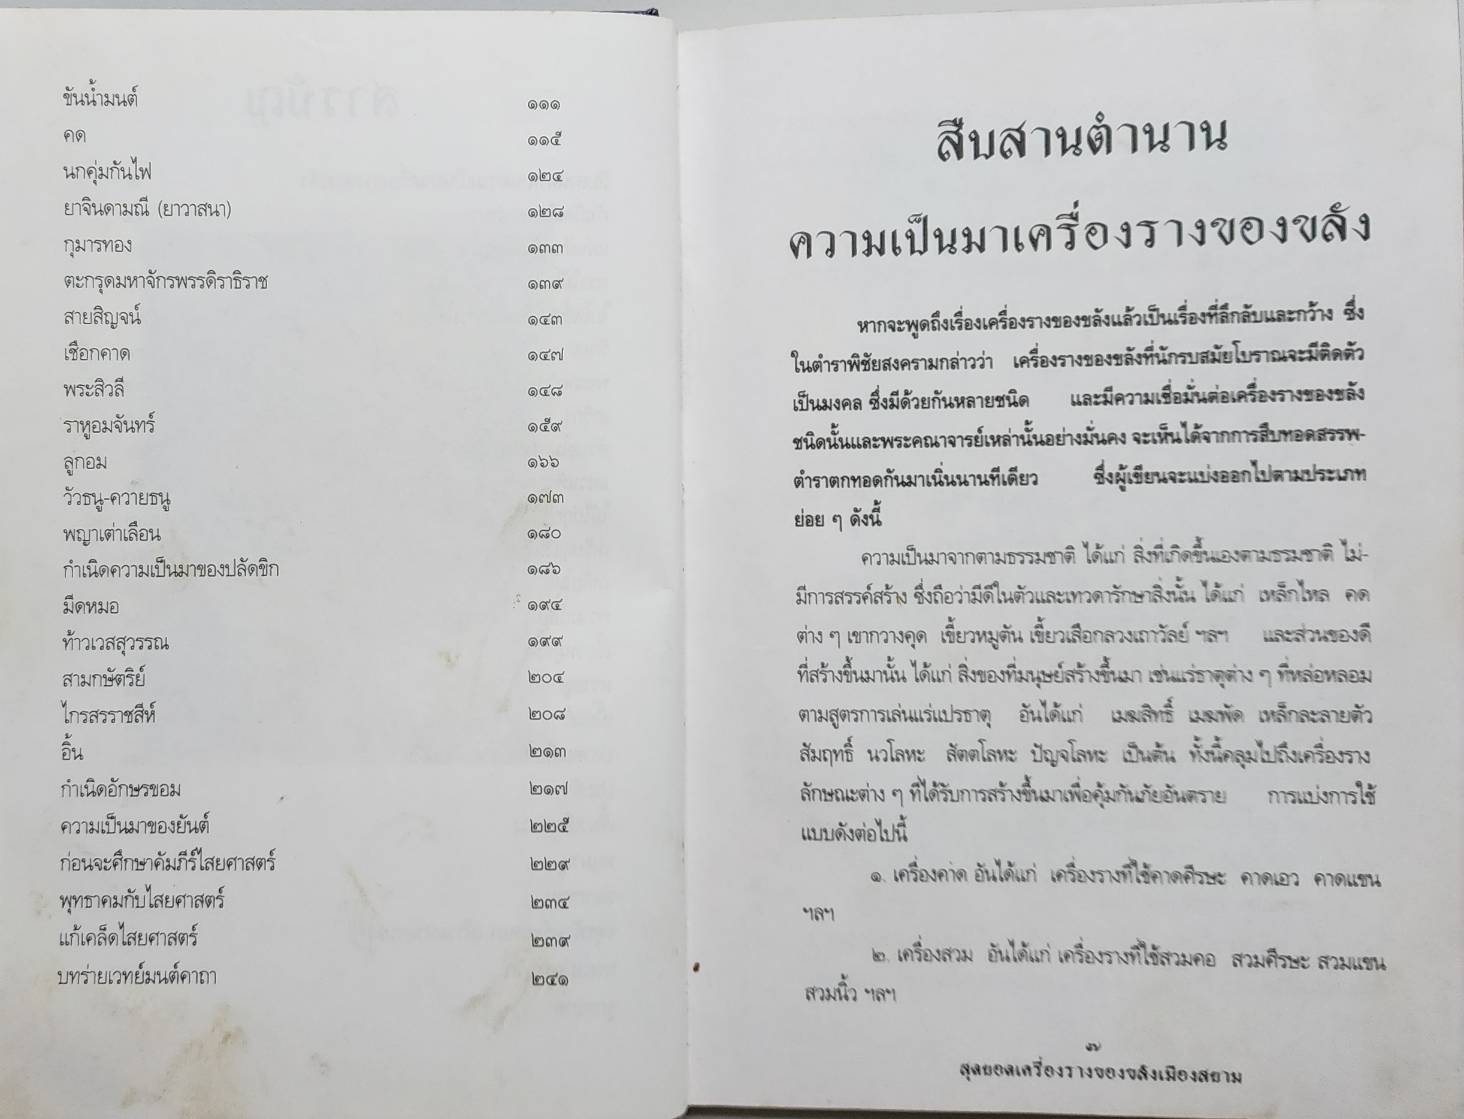 ขันน้ำมนต์ ๑๑๑
คด ๑๑๕
นกคุ่มกันไฟ ๑๒๔
ยาจินดามณี (ยาวาสนา) ๑๒๘
กุมารทอง ๑๓๓
ตะกรุดมหาจักรพรรดิราธิราช ๑๓๙
สายสิญจน์ ๑๔๓
เชือกคาด ๑๔๗
พระสิวลี ๑๔๘
ราหูอมจันทร์ ๑๕๙
ลูกอม ๑๖๖
วัวธนู-ควายธนู ๑๗๓
พญาเต่าเลือน ๑๘๐
กำเนิดความเป็นมาของปลัดขิก ๑๘๖
มีดหมอ ๑๙๔
ท้าวเวสสุวรรณ ๑๙๙
สามกษัตริย์ ๒๐๔
ไกรสรราชสีห์ ๒๐๘
อิ้น ๒๑๓
กำเนิดอักษรขอม ๒๑๗
ความเป็นมาของยันต์ ๒๒๕
ก่อนจะศึกษาคัมภีร์ไสยศาสตร์ ๒๒๙
พุทธาคมกับไสยศาสตร์ ๒๓๔
แก้เคล็ดไสยศาสตร์ ๒๓๙
บทร่ายเวทย์มนต์คาถา ๒๔๑
สืบสานตำนาน
ความเป็นมาเครื่องรางของขลัง
หากจะพูดถึงเรื่องเครื่องรางของขลังแล้วเป็นเรื่องที่ลึกลับและกว้าง ซึ่ง
ในตำราพิชัยสงครามกล่าวว่า เครื่องรางของขลังที่นักรบสมัยโบราณจะมีติดตัว
เป็นมงคล ซึ่งมีด้วยกันหลายชนิด และมีความเชื่อมั่นต่อเครื่องรางของขลัง
ชนิดนั้นและพระคณาจารย์เหล่านั้นอย่างมั่นคง จะเห็นได้จากการสืบทอดสรรพ-
ตำราตกทอดกันมาเนิ่นนานทีเดียว ซึ่งผู้เขียนจะแบ่งออกไปตามประเภท
ย่อย ๆ ดังนี้
ความเป็นมาจากตามธรรมชาติ ได้แก่ สิ่งที่เกิดขึ้นเองตามธรรมชาติ ไม่-
มีการสรรค์สร้าง ซึ่งถือว่ามีดีในตัวและเทวดารักษาสิ่งนั้น ได้แก่ เหล็กไหล คด
ต่าง ๆ เขากวางคุด เขี้ยวหมูตัน เขี้ยวเสือกลวงเถาวัลย์ ฯลฯ และส่วนของดี
ที่สร้างขึ้นมานั้น ได้แก่ สิ่งของที่มนุษย์สร้างขึ้นมา เช่นแร่ธาตุต่าง ๆ ที่หล่อหลอม
ตามสูตรการเล่นแร่แปรธาตุ อันได้แก่ เมฆสิทธิ์ เมฆพัด เหล็กละลายตัว
สัมฤทธิ์ นวโลหะ สัตตโลหะ ปัญจโลหะ เป็นต้น ทั้งนี้คลุมไปถึงเครื่องราง
ลักษณะต่าง ๆ ที่ได้รับการสร้างขึ้นมาเพื่อคุ้มกันภัยอันตราย การแบ่งการใช้
แบบดังต่อไปนี้
๑. เครื่องคาด อันได้แก่ เครื่องรางที่ใช้คาดศีรษะ คาดเอว คาดแขน
ฯลฯ
๒. เครื่องสวม อันได้แก่ เครื่องรางที่ใช้สวมคอ สวมศีรษะ สวมแขน
สวมนิ้ว ฯลฯ
สุดยอดเครื่องรางของขลังเมืองสยาม